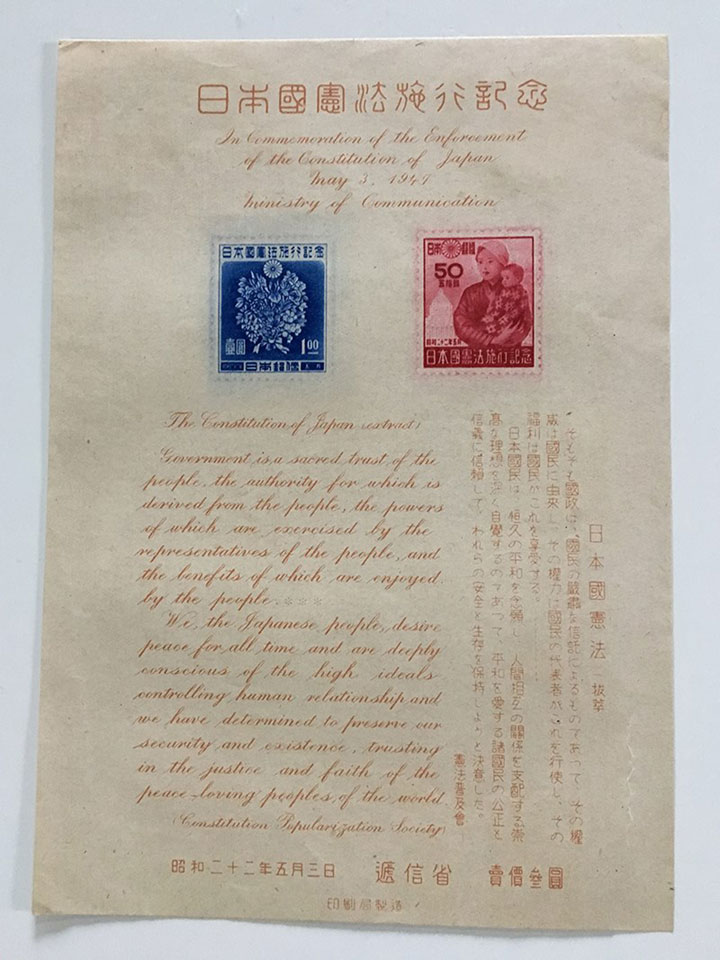 日本國憲法施行記念
In Commemoration of the Enforcement
of the Constitution of Japan
May 3, 1947
Ministry of Communication
日本國憲法施行記念
壹圓
1.00
日本郵便
日本郵便
50
五拾錢
昭和二十二年五月
日本國憲法施行記念
The Constitution of Japan (extract)
Government is a sacred trust of the
people, the authority for which is
derived from the people, the powers
of which are exercised by the
representatives of the people, and
the benefits of which are enjoyed
by the people. ※※※
We, the Japanese people, desire
peace for all time and are deeply
conscious of the high ideals
controlling human relationship and
we have determined to preserve our
security and existence, trusting
in the justice and faith of the
peace-loving peoples of the world.
(Constitution Popularization Society)
日本國憲法 拔萃
そもそも國政は、國民の嚴肅な信託によるものであって、その權
威は國民に由來し、その權力は國民の代表者がこれを行使し、その
福利は國民がこれを享受する。
日本國民は、恒久の平和を念願し、人間相互の關係を支配する崇
高な理想を深く自覺するのであって、平和を愛する諸國民の公正と
信義に信賴して、われらの安全と生存を保持しようと決意した。
憲法普及會
昭和二十二年五月三日 遞信省 賣價參圓
印刷局製造